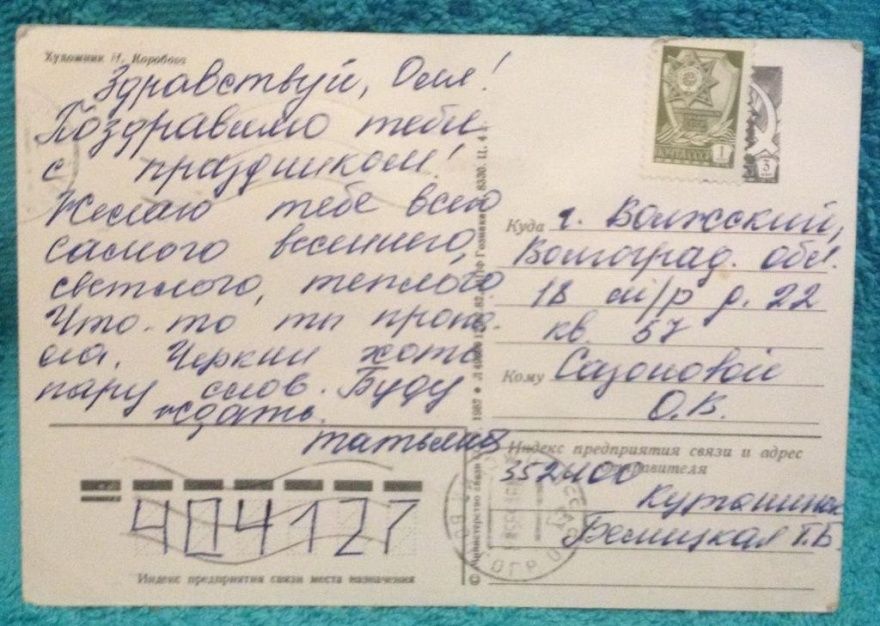 Художник Н. Коробова
Здравствуй, Оля!
Поздравляю тебя
с праздником!
Желаю тебе всего
самого весеннего,
светлого, теплого
Что-то ты пропа-
ла. Черкни хоть
пару слов. Буду
ждать.
Татьяна
1
3
Куда г. Волжский,
Волгоград. обл.
18 м/р д. 22
кв 57
Кому Сазоновой
О.В.
Индекс предприятия связи и адрес
отправителя
352400
Белицкая Т.Б.
404127
Индекс предприятия связи места назначения
© Министерство связи 1987